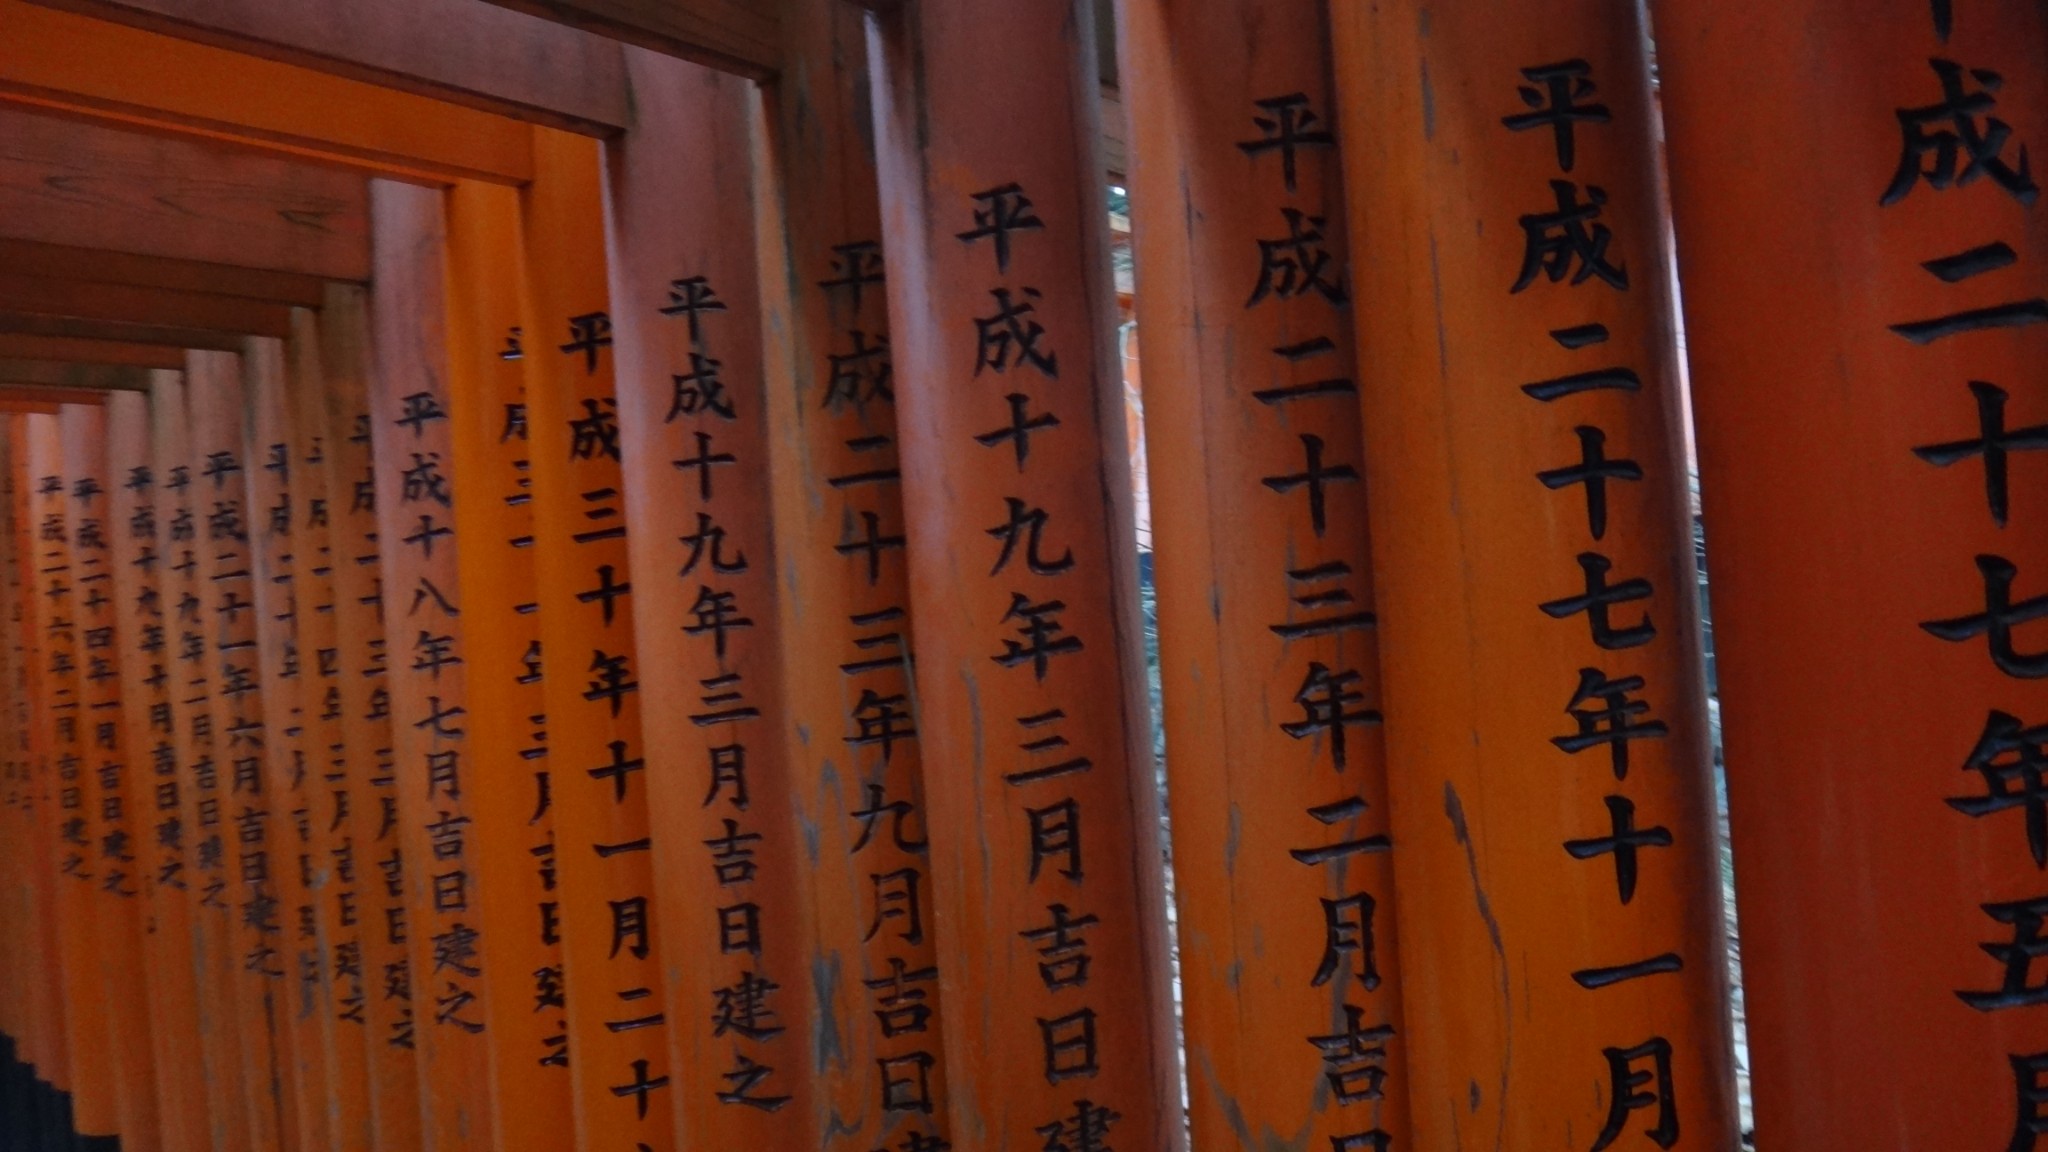 成二十七年五月
平成二十七年十一月
平成二十三年二月吉日
平成十九年三月吉日建
平成二十三年九月吉日建
平成十九年三月吉日建之
平成三十年十一月二十
平成三十一年三月吉日建之
平成十八年七月吉日建之
平成二十三年三月吉日建之
平成二十一年六月吉日建之
平成十九年二月吉日建之
平成十九年十月吉日建之
平成二十四年一月吉日建之
平成二十六年二月吉日建之